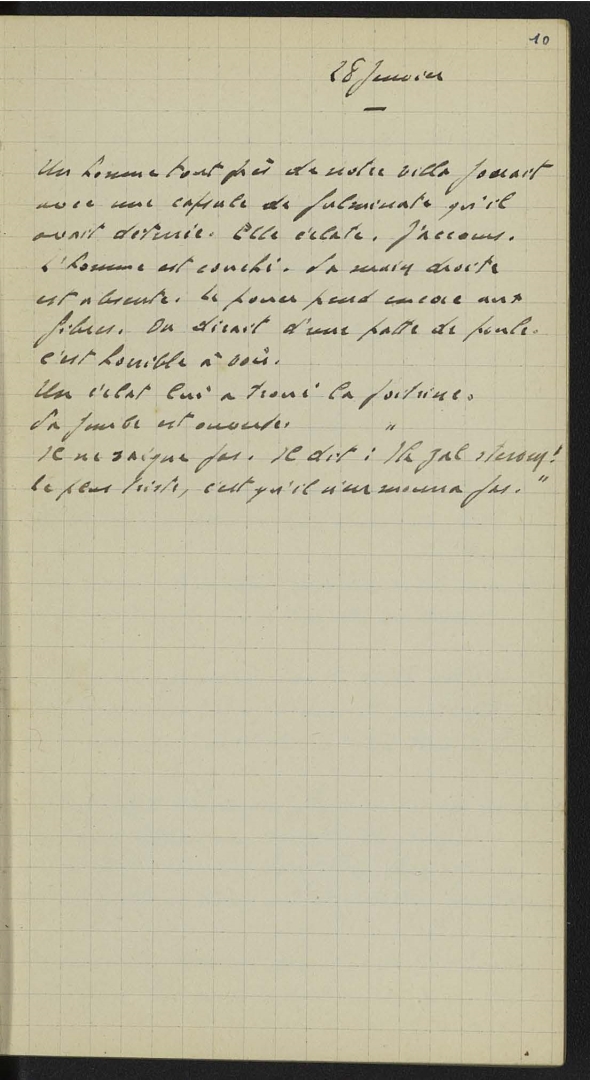 10
28 Janvier
Un homme tout près de notre villa jouait
avec une capsule de fulminate qu'il
avait
Elle éclate. J'accours.
L'homme est couché. Sa main droite
est absente. Le pouce pend encore aux
fibres. On dirait d'une patte de poule.
C'est horrible à voir.
Un éclat lui a troué la poitrine.
Sa jambe est ouverte.
Il ne saigne pas. Il dit : "
le plus triste, c'est qu'il n'en mourra pas."